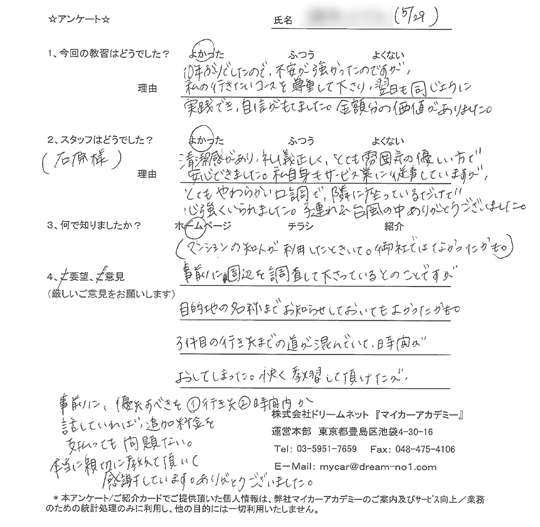 ☆アンケート☆
氏名 (5/29)
1、今回の教習はどうでした? よかった ふつう よくない
理由 10年ぶりでしたので、不安が強かったのですが、
私の行きたいコースを尊重して下さり、翌日も同じように
実践でき、自信がもてました。金額分の価値がありました。
2、スタッフはどうでした? よかった ふつう よくない
(石原様)
理由 清潔感があり、礼儀正しく、とても雰囲気の優しい方で
安心できました。私自身もサービス業に従事していますが、
とてもやわらかい口調で、隣に座っているだけで
心強くいられました。子連れ&台風の中ありがとうございました。
3、何で知りましたか? ホームページ チラシ 紹介
(マンションの知人が利用したときいて。御社ではなかったかも。)
4、ご要望、ご意見
(厳しいご意見をお願いします)
事前に周辺を調査して下さっているとのことですが
目的地の名称までお知らせしておいてもよかったかも。
3件目の行き先までの道が混んでいて、時間が
おしてしまった。快く教習して頂けたが、
事前に、優先すべきを①行き先②時間内か
話していれば、追加料金を
支払っても問題ない。
本当に親切に教えて頂いて
感謝しています。ありがとうございました。
株式会社ドリームネット 『マイカーアカデミー』
運営本部 東京都豊島区池袋4-30-16
Tel: 03-5951-7659 Fax: 048-475-4106
E-Mail: mycar@dream-no1.com
*本アンケート/ご紹介カードでご提供頂いた個人情報は、弊社マイカーアカデミーのご案内及びサービス向上/業務
のための統計処理のみに利用し、他の目的には一切利用いたしません。